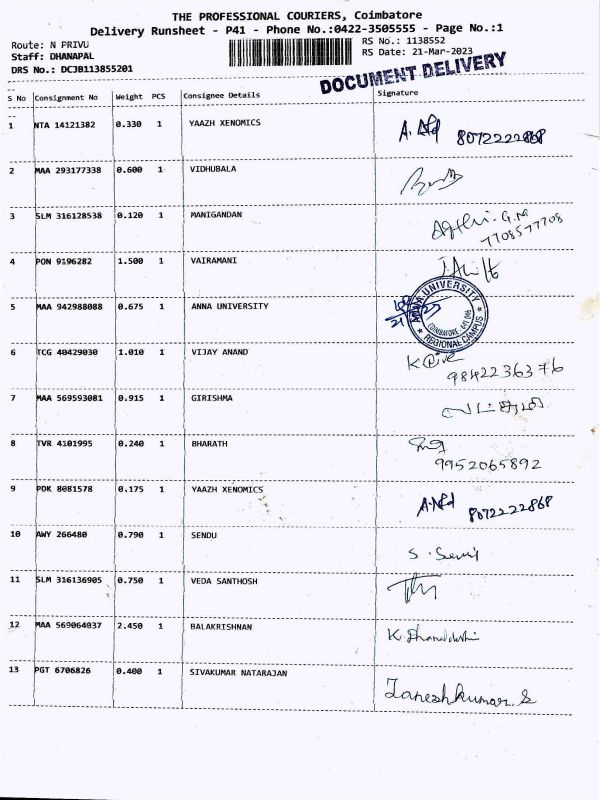 THE PROFESSIONAL COURIERS, Coimbatore
Delivery Runsheet - P41 - Phone No.:0422-3505555 - Page No.:1
Route: N PRIVU
RS No.: 1138552
Staff: DHANAPAL
RS Date: 21-Mar-2023
DRS No.: DCJB113855201
DOCUMENT DELIVERY
S No Consignment No Weight PCS Consignee Details Signature
1 NTA 14121382 0.330 1 YAAZH XENOMICS
8072222868
2 MAA 293177338 0.600 1 VIDHUBALA
3 SLM 316128538 0.120 1 MANIGANDAN
7708577708
4 PON 9196282 1.500 1 VAIRAMANI
5 MAA 942988088 0.675 1 ANNA UNIVERSITY
ANNA UNIVERSITY
COIMBATORE
REGIONAL CAMPUS
6 TCG 40429030 1.010 1 VIJAY ANAND
9842236376
7 MAA 569593081 0.915 1 GIRISHMA
8 TVR 4101995 0.240 1 BHARATH
9952065892
9 PDK 8081578 0.175 1 YAAZH XENOMICS
8072222868
10 AWY 266480 0.790 1 SENDU
11 SLM 316136905 0.750 1 VEDA SANTHOSH
12 MAA 569064037 2.450 1 BALAKRISHNAN
13 PGT 6706826 0.400 1 SIVAKUMAR NATARAJAN